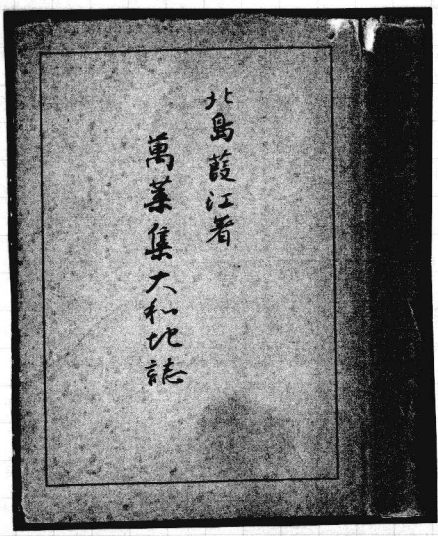 北島葭江著
萬葉集大和地誌